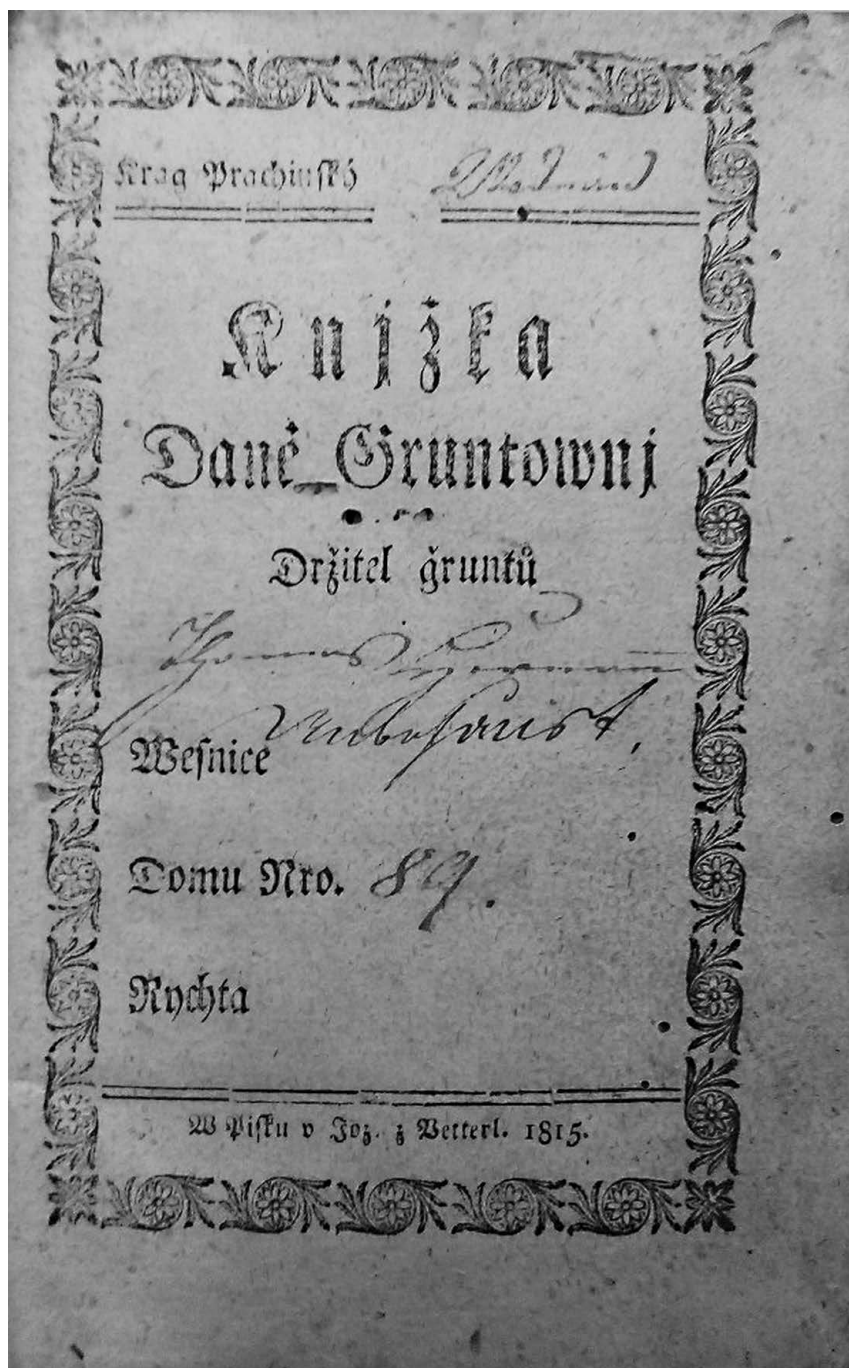 Krag Prachinský
Knjžka
Daně Gruntownj
Držitel ǧruntů
Thomas Hermann
Wesnice
Domu Nro. 89.
Rychta
W Pisku v Joz. z Vetterl. 1815.